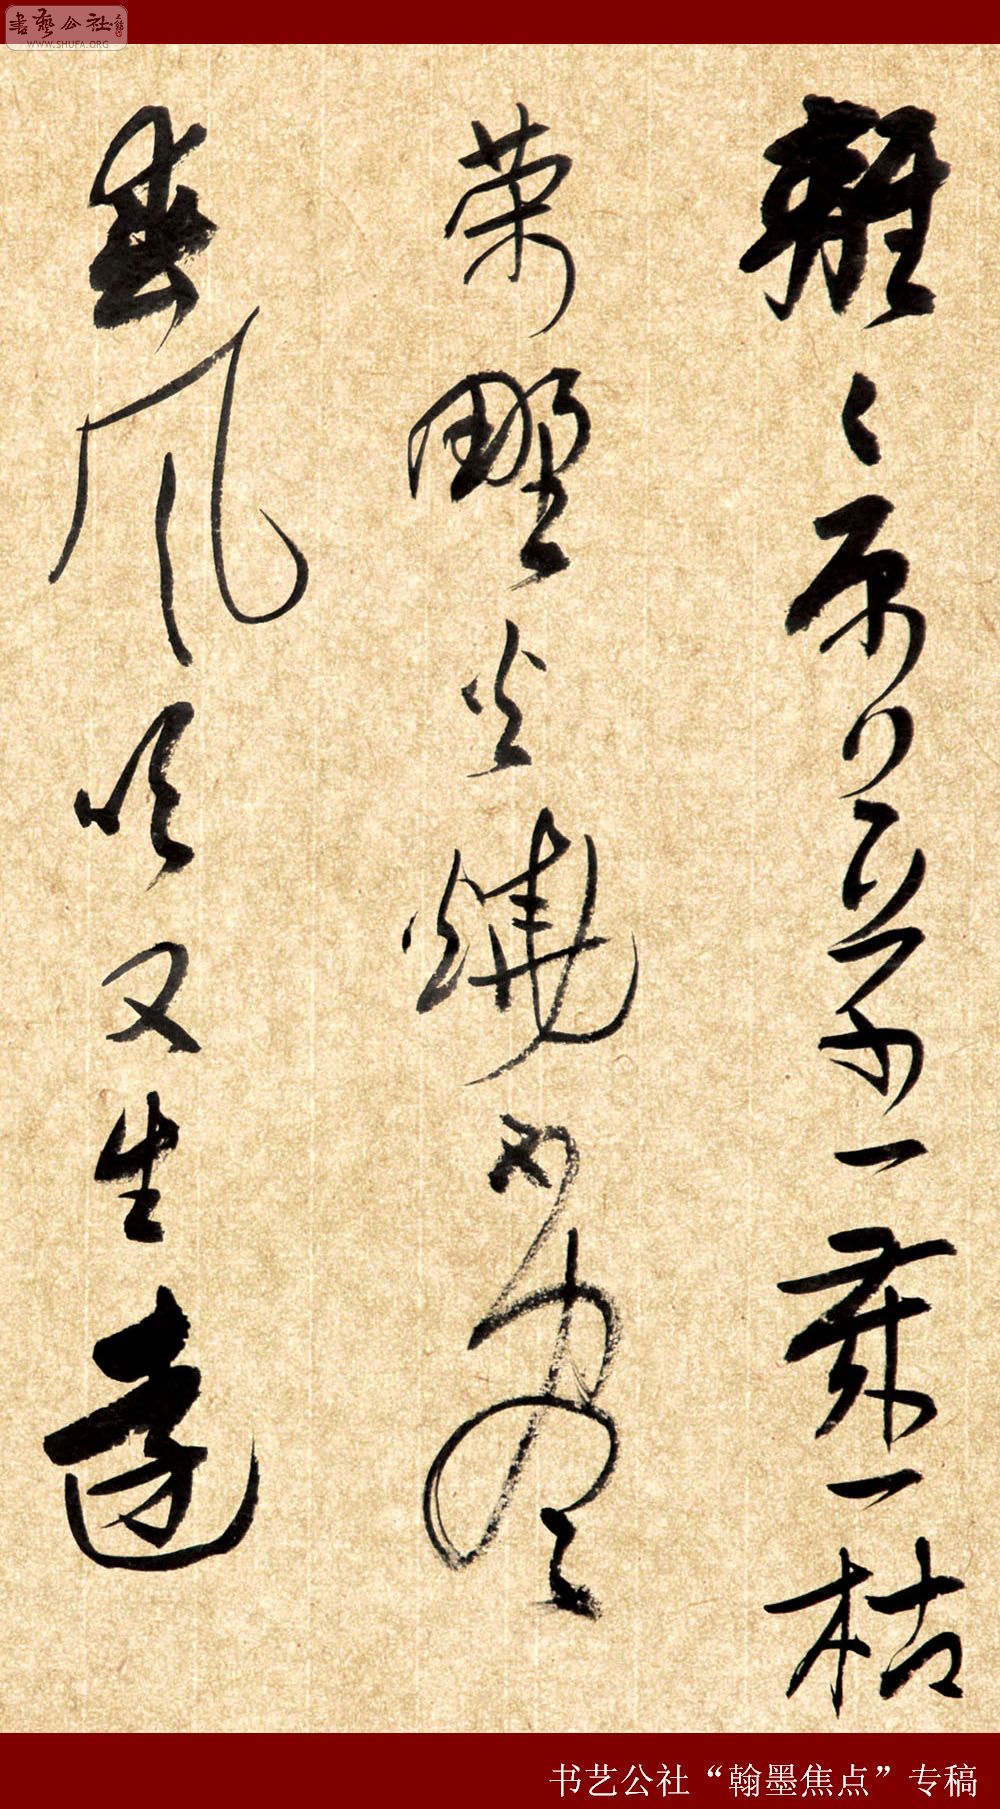 書藝公社
WWW.SHUFA.ORG
離〻原上草一歲一枯
荣野火燒不盡
春风吹又生遠
书艺公社“翰墨焦点”专稿